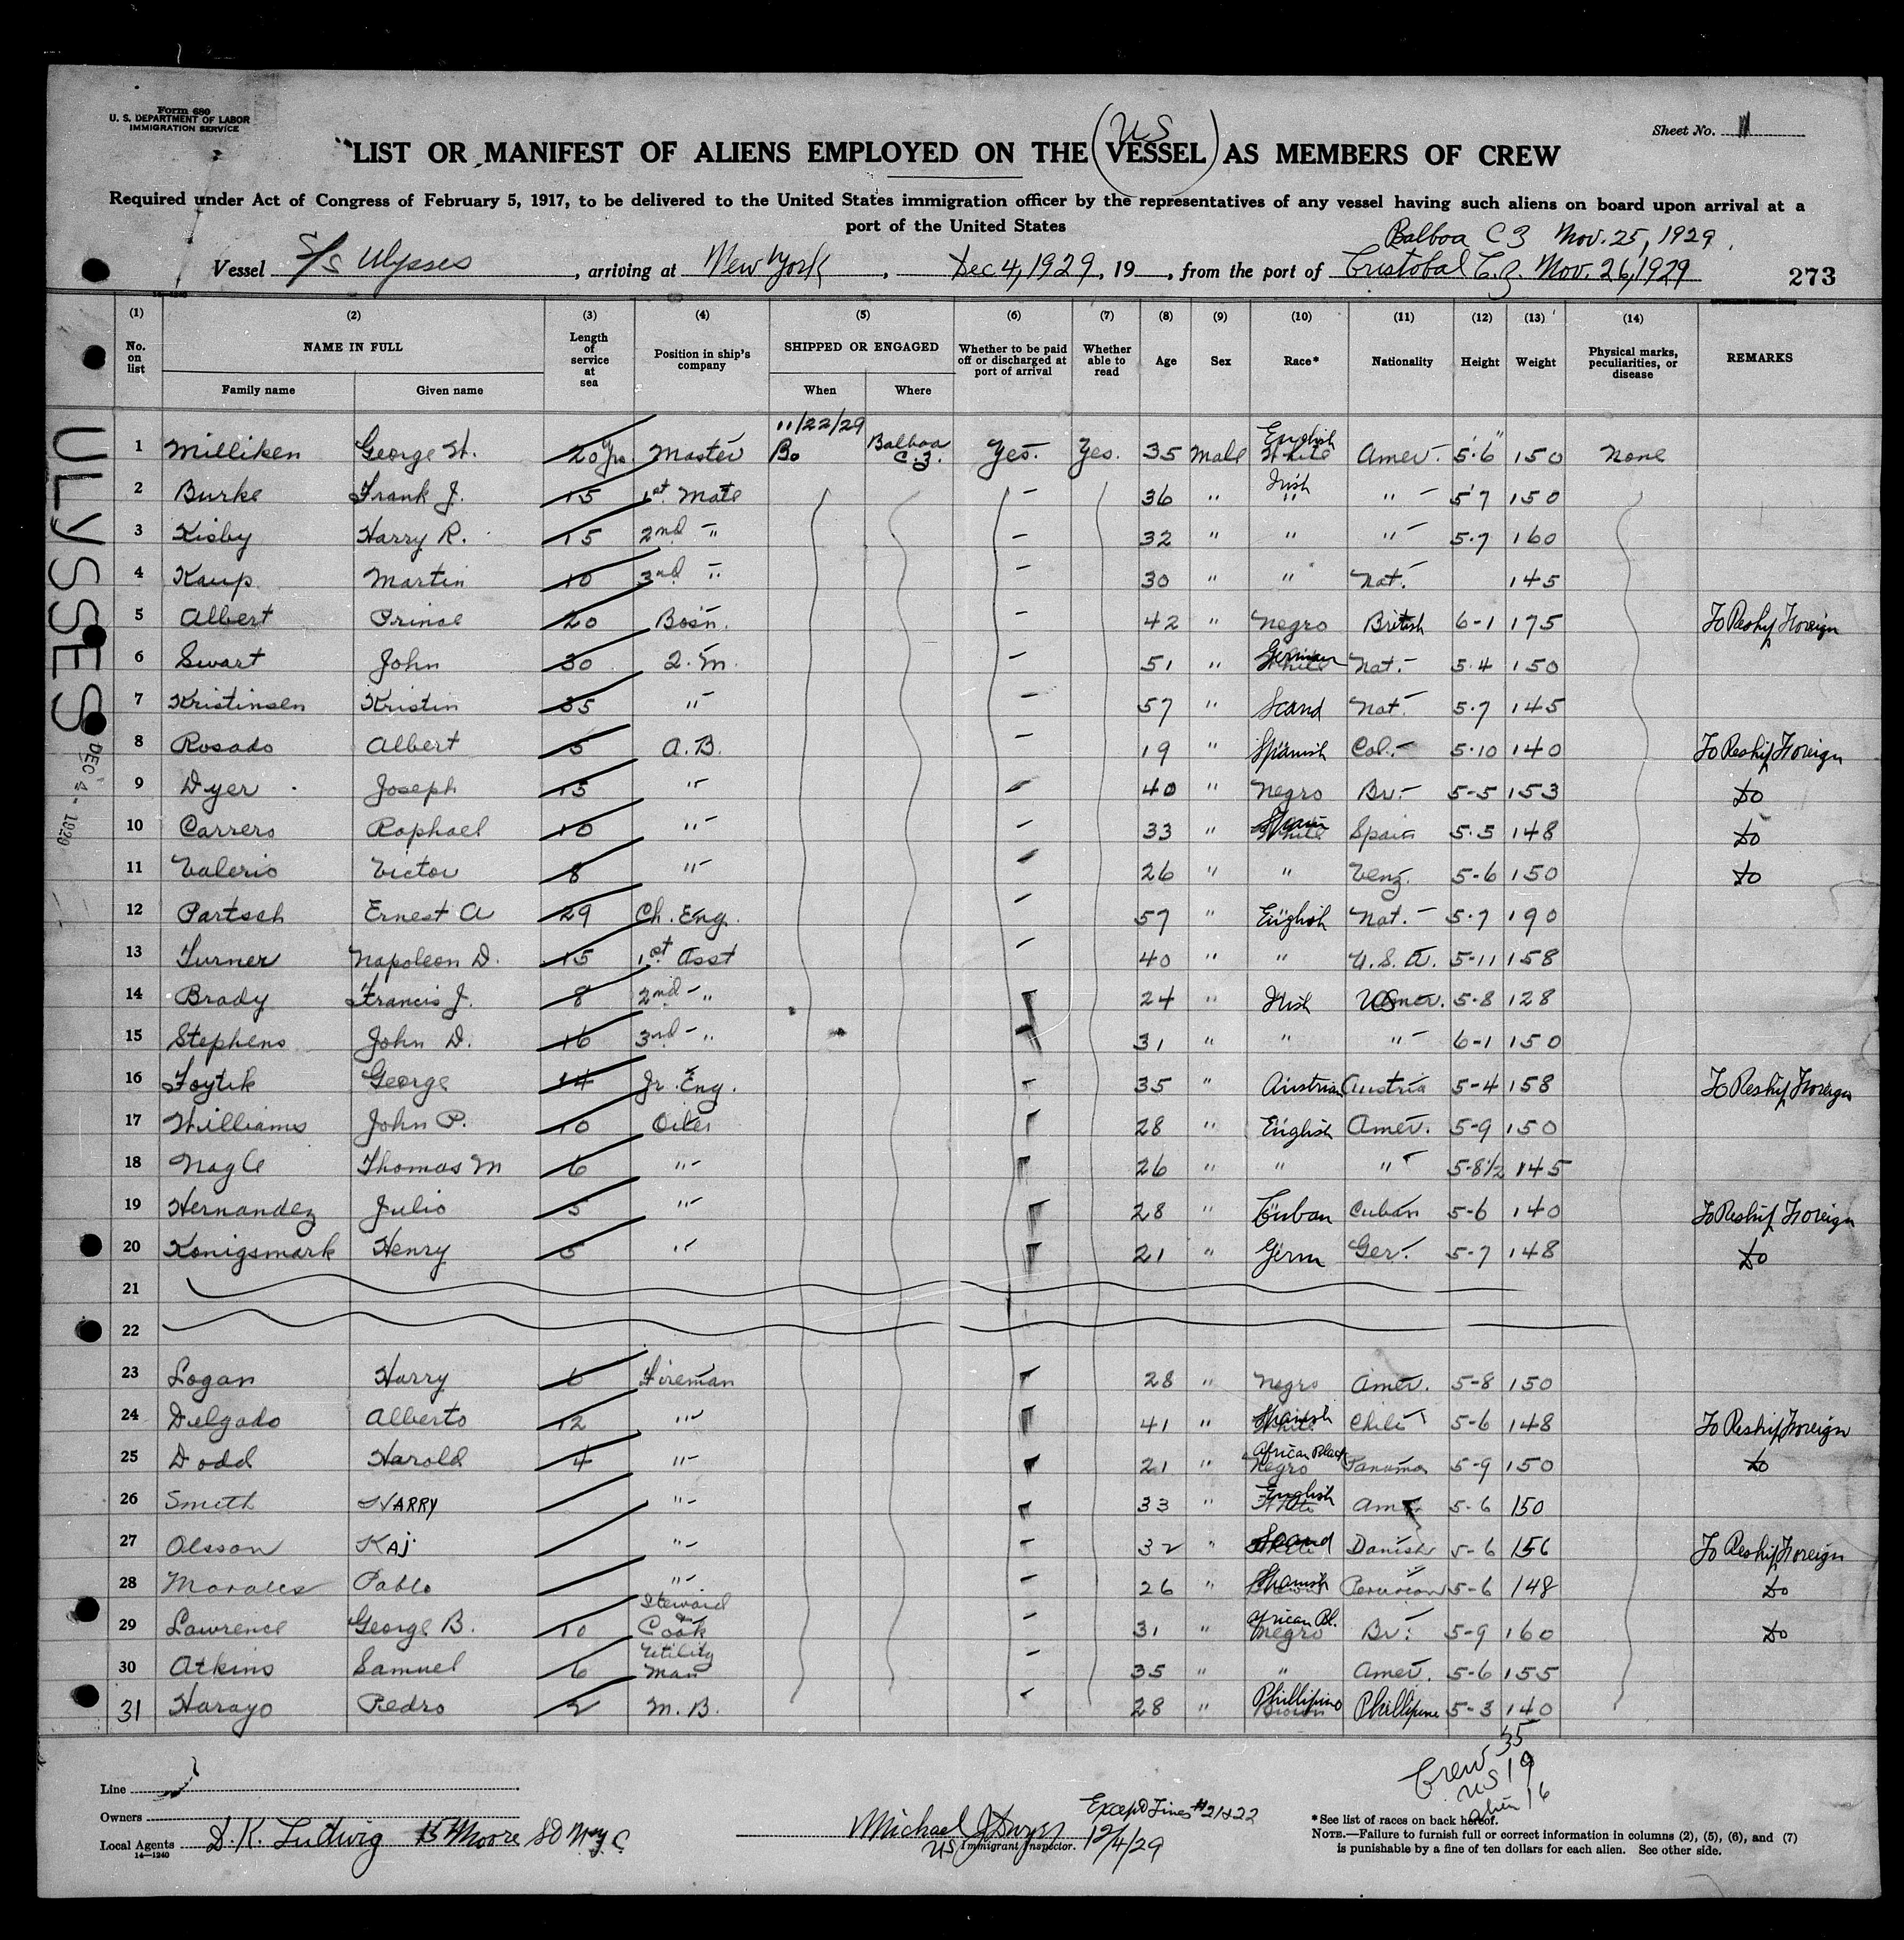 Form 680
U. S. DEPARTMENT OF LABOR
IMMIGRATION SERVICE
Sheet No. 1
US
LIST OR MANIFEST OF ALIENS EMPLOYED ON THE (VESSEL) AS MEMBERS OF CREW
Required under Act of Congress of February 5, 1917, to be delivered to the United States immigration officer by the representatives of any vessel having such aliens on board upon arrival at a
port of the United States
Balboa C Z Nov. 25, 1929
Vessel S/S Ulysses, arriving at New York, Dec 4, 1929, 19, from the port of Cristobal C.Z. Nov. 26, 1929
273
(1) (2) (3) (4) (5) (6) (7) (8) (9) (10) (11) (12) (13) (14)
No. on list NAME IN FULL Length of service at sea Position in ship's company SHIPPED OR ENGAGED Whether to be paid off or discharged at port of arrival Whether able to read Age Sex Race* Nationality Height Weight Physical marks, peculiarities, or disease REMARKS
Family name Given name When Where
ULYSSES
DEC 4 - 1929
11/22/29
1 Milliken George H. 20 yrs Master Bo Balboa C.Z. Yes. Yes. 35 Male English White Amer. 5'6" 150 None
2 Burke Frank J. 15 1st Mate 36 " Irish " " 5'7 150
3 Kisby Harry R. 15 2nd " 32 " " " 5-7 160
4 Kaup Martin 10 3rd " 30 " " Nat. 145
5 Albert Prince 20 Bos'n. 42 " Negro British 6-1 175 To Reship Foreign
6 Swart John 30 Q. M. 51 " German White Nat. 5-4 150
7 Kristinsen Kristin 35 " 57 " Scand Nat. 5-7 145
8 Rosado Albert 5 A. B. 19 " Spanish Col. 5-10 140 To Reship Foreign
9 Dyer Joseph 15 " 40 " Negro Br. 5-5 153 Do
10 Carrero Raphael 10 " 33 " White Spain 5-5 148 Do
11 Valerio Victor 8 " 26 " " Venz. 5-6 150 Do
12 Partsch Ernest A 29 Ch. Eng. 57 " English Nat. 5-7 190
13 Turner Napoleon D. 15 1st Asst 40 " " U. S. A. 5-11 158
14 Brady Francis J. 8 2nd " 24 " Irish Amer. 5-8 128
15 Stephens John D. 16 3rd " 31 " " " 6-1 150
16 Foytik George 14 Jr. Eng. 35 " Austrian Austria 5-4 158 To Reship Foreign
17 Williams John P. 10 Oiler 28 " English Amer. 5-9 150
18 Nagle Thomas M 6 " 26 " " " 5-8 1/2 145
19 Hernandez Julio 5 " 28 " Cuban Cuban 5-6 140 To Reship Foreign
20 Konigsmark Henry 5 " 21 " Germ Ger. 5-7 148 Do
21
22
23 Logan Harry 6 Fireman 28 " Negro Amer. 5-8 150
24 Delgado Alberto 12 " 41 " Spanish White Chile 5-6 148 To Reship Foreign
25 Dodd Harold 4 " 21 " African Black Negro Panama 5-9 150 Do
26 Smith HARRY " 33 " English White Am. 5-6 150
27 Olsson KAJ " 32 " Scand White Danish 5-6 156 To Reship Foreign
28 Morales Pablo " 26 " Spanish Peruvian 5-6 148 Do
29 Lawrence George B. 10 Steward & Cook 31 " African Bl. Negro Br. 5-9 160 Do
30 Atkins Samuel 6 Utility Man 35 " " Amer. 5-6 155
31 Harayo Pedro 2 M. B. 28 " Phillipino Brown Phillipine 5-3 140
Crew 35
US 19
Alien 16
Line
Owners
Local Agents D. K. Ludwig
14-1240
Michael J Dwyer
US Immigrant Inspector. 12/4/29
Except Lines #21 & 22
*See list of races on back hereof.
NOTE.—Failure to furnish full or correct information in columns (2), (5), (6), and (7)
is punishable by a fine of ten dollars for each alien. See other side.